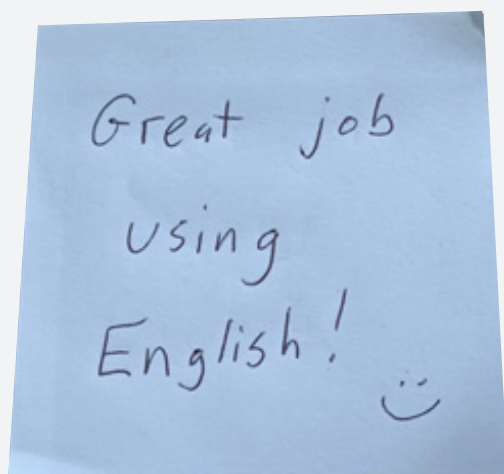 Great job
using
English!